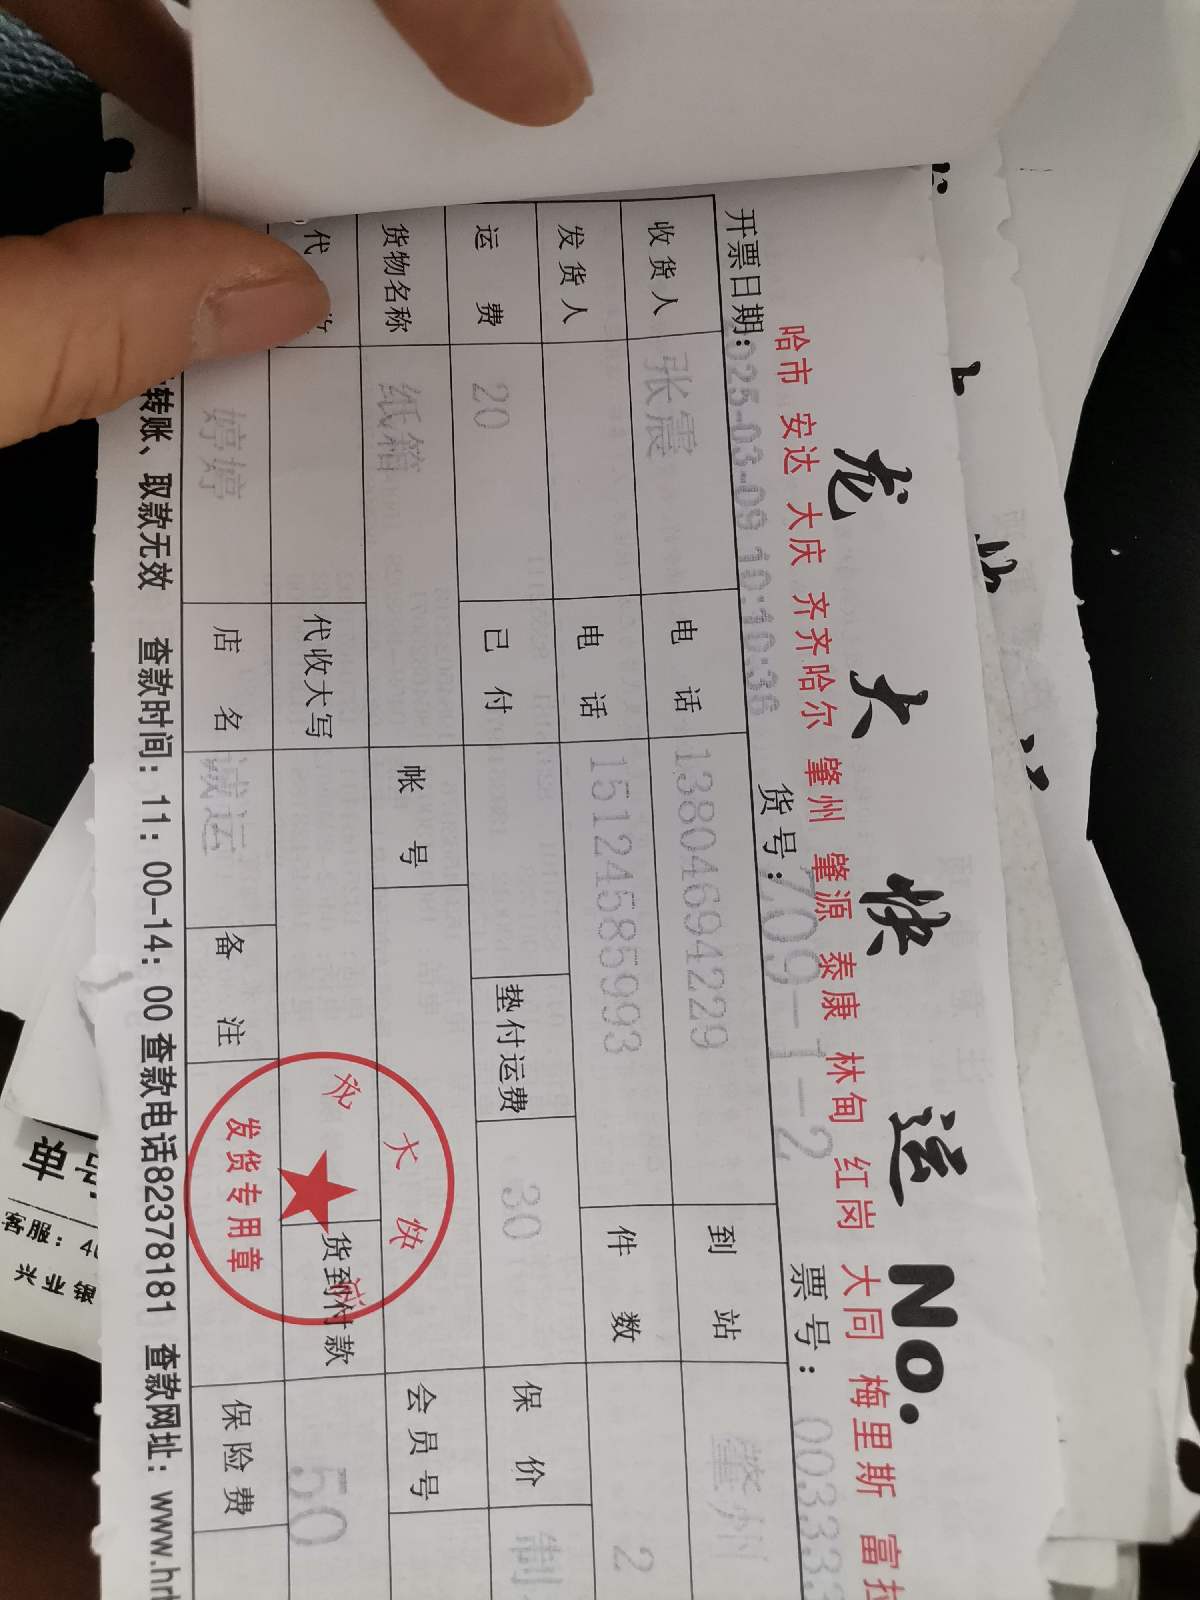 龙大快运 No.
哈市 安达 大庆 齐齐哈尔 肇州 肇源 泰康 林甸 红岗 大同 梅里斯 富拉
开票日期：025-03-09 10:10:36 货号：709-1-2 票号：003333
收货人 张震 电话 13804694229 到站 肇州
发货人 电话 15124585993 件数 2
运费 20 已付 垫付运费 30 保价 制
货物名称 纸箱 帐号 会员号
代收 代收大写 货到付款 50
婷婷 店名 诚运 备注 保险费
转账、取款无效 查款时间：11：00-14：00 查款电话82378181 查款网址：www.hr
龙大快运
发货专用章
单号
客服：40
兴业银